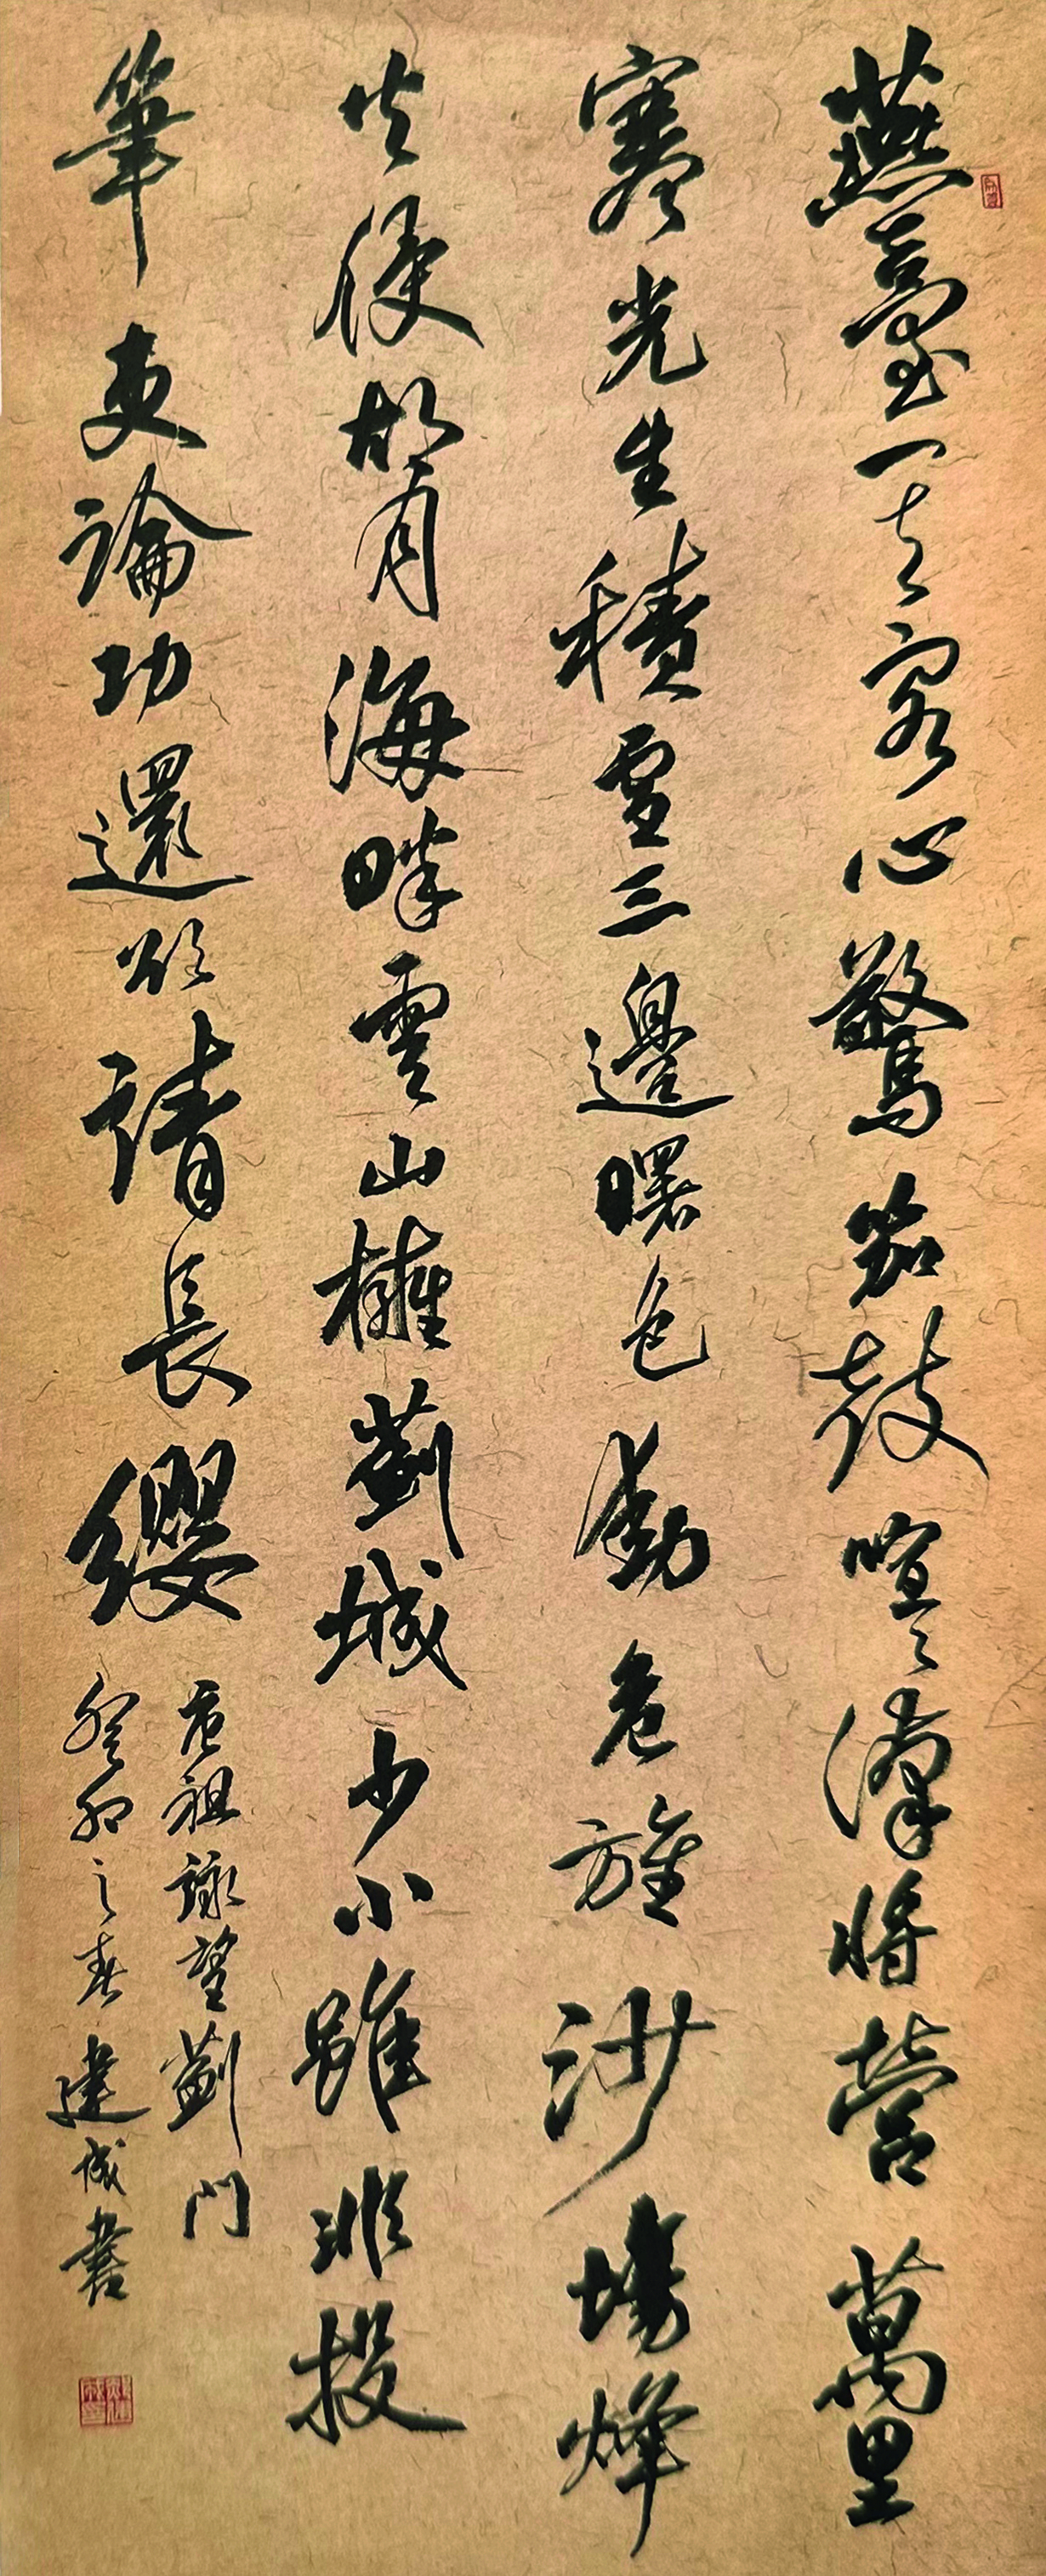 燕臺一去客心驚笳鼓喧々漢將營萬里
寒光生積雪三邊曙色動危旌沙場烽
火侵胡月海畔雲山擁薊城少小雖非投
筆吏論功還欲請長纓
唐祖詠望薊門
癸卯之春建成書